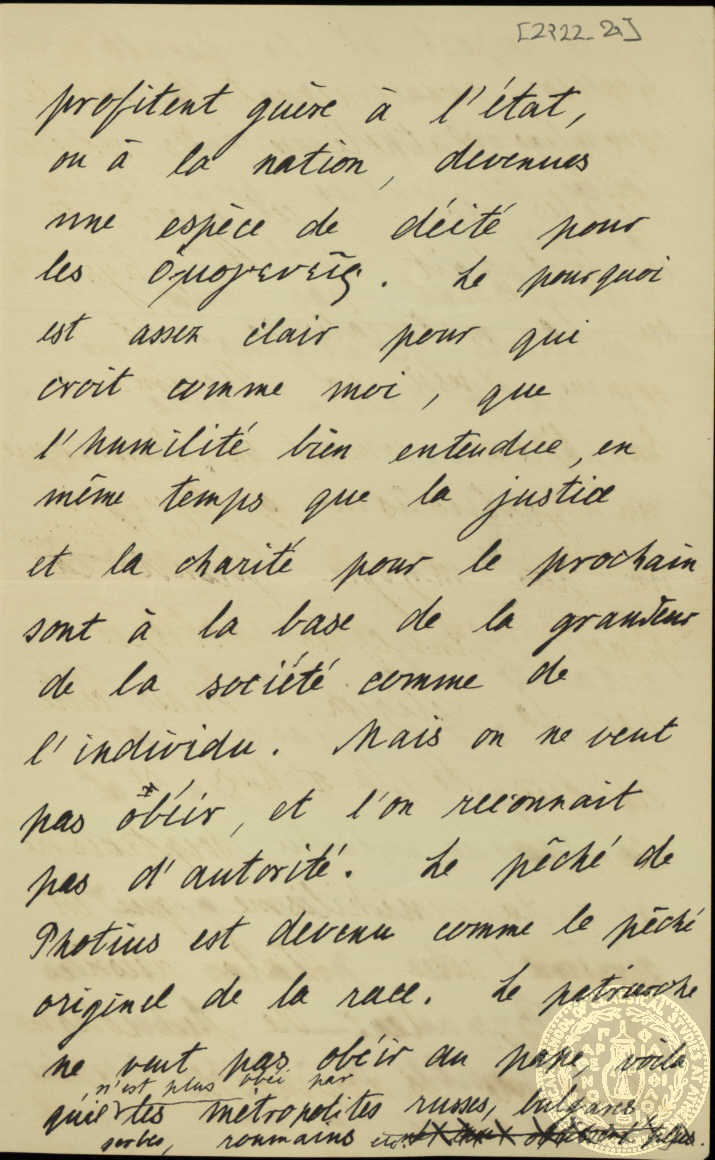 [2722_2]
profitent guère à l'état,
ou à la nation, devenues
une espèce de déité pour
les ὁμογενεῖς. Le pourquoi
est assez clair pour qui
croit comme moi, que
l'humilité bien entendue, en
même temps que la justice
et la charité pour le prochain
sont à la base de la grandeur
de la société comme de
l'individu. Mais on ne veut
pas obéir, et l'on reconnait
pas d'autorité. Le pêché de
Photius est devenu comme le pêché
originel de la race. Le patriarche
ne veut pas obéir au pape, voila
n'est plus obéi par
qu'il les métropolites russes, bulgares,
serbes, roumains etc.